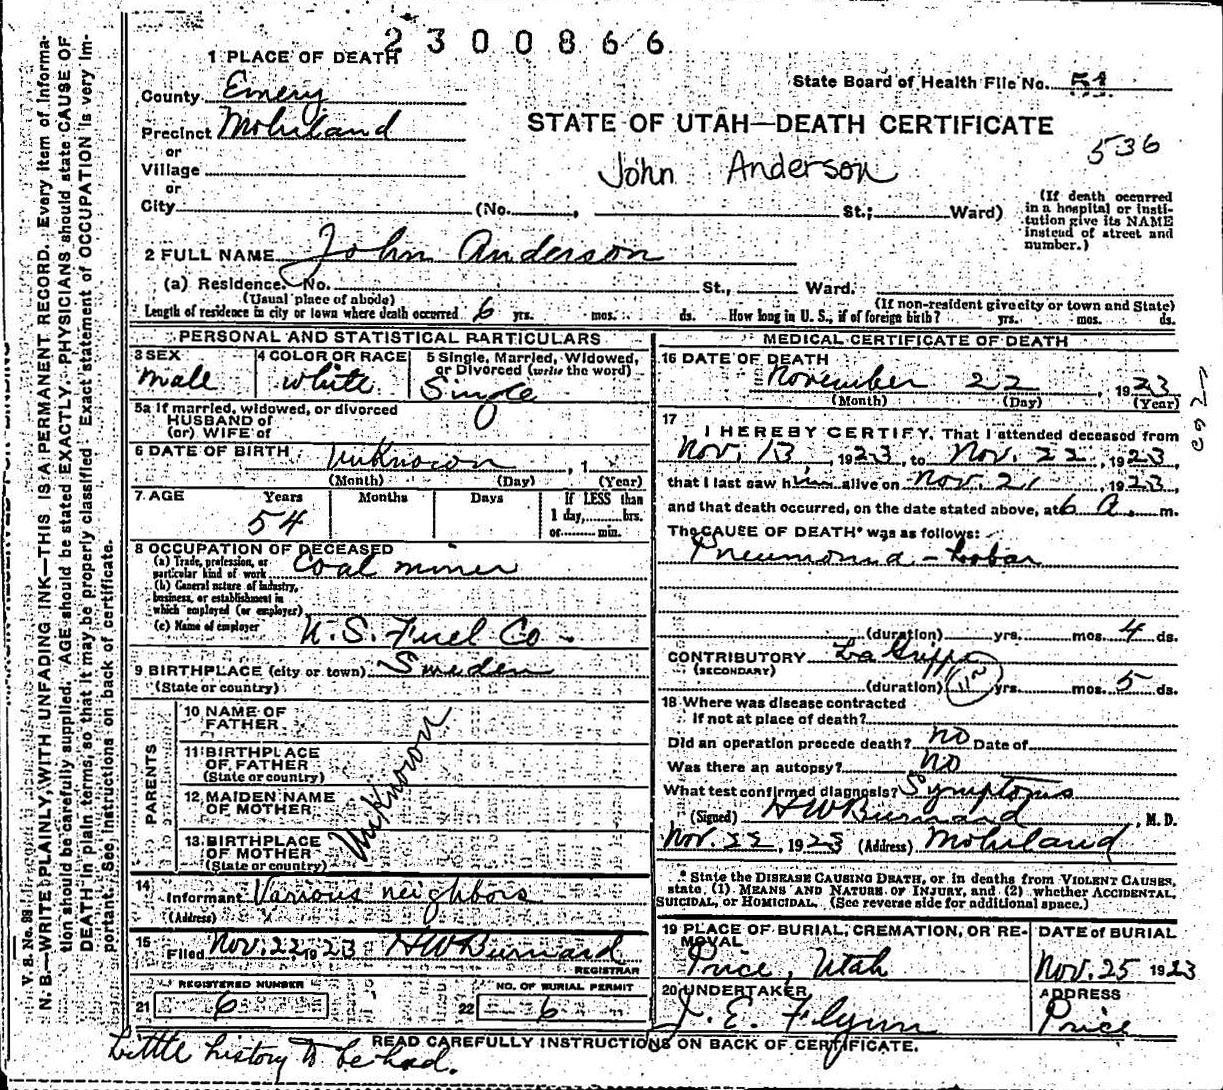 2300866
1 PLACE OF DEATH
State Board of Health File No. 51
County Emery
Precinct Mohrland
STATE OF UTAH—DEATH CERTIFICATE
536
or
Village
John Anderson
or
City (No. , St.; Ward)
(If death occurred in a hospital or institution give its NAME instead of street and number.)
2 FULL NAME John Anderson
(a) Residence. No. St., Ward.
(Usual place of abode) (If non-resident give city or town and State)
Length of residence in city or town where death occurred 6 yrs. mos. ds. How long in U. S., if of foreign birth? yrs. mos. ds.
PERSONAL AND STATISTICAL PARTICULARS
3 SEX
male
4 COLOR OR RACE
white
5 Single, Married, Widowed,
or Divorced (write the word)
Single
5a If married, widowed, or divorced
HUSBAND of
(or) WIFE of
6 DATE OF BIRTH Unknown , 1
(Month) (Day) (Year)
7. AGE Years Months Days If LESS than
1 day, hrs.
or min.
54
8 OCCUPATION OF DECEASED
(a) Trade, profession, or
particular kind of work Coal miner
(b) General nature of industry,
business, or establishment in
which employed (or employer)
(c) Name of employer U. S. Fuel Co
9 BIRTHPLACE (city or town) Sweden
(State or country)
PARENTS
10 NAME OF
FATHER
11 BIRTHPLACE
OF FATHER
(State or country)
12 MAIDEN NAME
OF MOTHER
13 BIRTHPLACE
OF MOTHER
(State or country)
Unknown
14
Informant Various neighbors
(Address)
15
Filed Nov. 22, 1923 H W Burnard
REGISTRAR
REGISTERED NUMBER
21 6
NO. OF BURIAL PERMIT
22 6
MEDICAL CERTIFICATE OF DEATH
16 DATE OF DEATH
November 22 , 1923
(Month) (Day) (Year)
17
I HEREBY CERTIFY, That I attended deceased from
Nov. 13, 1923, to Nov. 22, 1923,
that I last saw him alive on Nov. 21, 1923,
and that death occurred, on the date stated above, at 6 A. m.
The CAUSE OF DEATH* was as follows:
Pneumonia - Lobar
(duration) yrs. mos. 4 ds.
CONTRIBUTORY La Grippe
(SECONDARY)
(duration) yrs. mos. 5 ds.
18 Where was disease contracted
if not at place of death?
Did an operation precede death? no Date of
Was there an autopsy? no
What test confirmed diagnosis? Symptoms
(Signed) H W Burnard , M. D.
Nov. 22, 1923 (Address) Mohrland
* State the DISEASE CAUSING DEATH, or in deaths from VIOLENT CAUSES,
state (1) MEANS AND NATURE OF INJURY, and (2) whether ACCIDENTAL,
SUICIDAL, or HOMICIDAL. (See reverse side for additional space.)
19 PLACE OF BURIAL, CREMATION, OR RE-
MOVAL
Price, Utah
DATE of BURIAL
Nov. 25 1923
20 UNDERTAKER
J. E. Flynn
ADDRESS
Price
READ CAREFULLY INSTRUCTIONS ON BACK OF CERTIFICATE.
Little history to be had.
V. S. No. 98
N. B.—WRITE PLAINLY, WITH UNFADING INK—THIS IS A PERMANENT RECORD. Every item of informa-
tion should be carefully supplied. AGE should be stated EXACTLY. PHYSICIANS should state CAUSE OF
DEATH in plain terms, so that it may be properly classified. Exact statement of OCCUPATION is very im-
portant. See instructions on back of certificate.